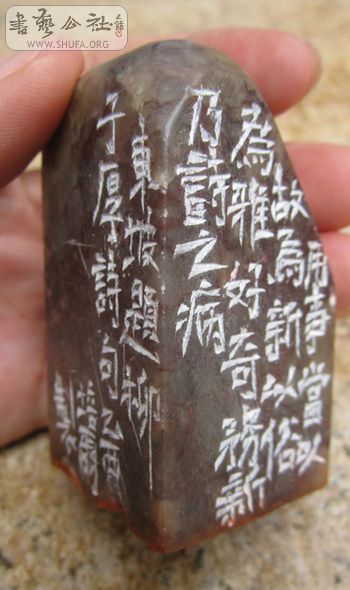 書藝公社
WWW.SHUFA.ORG
用事當以
故為新以俗
為雅好奇務新
乃詩之病
東坡題柳
子厚詩句乙酉